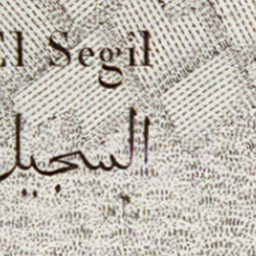 El Segil
السجيل